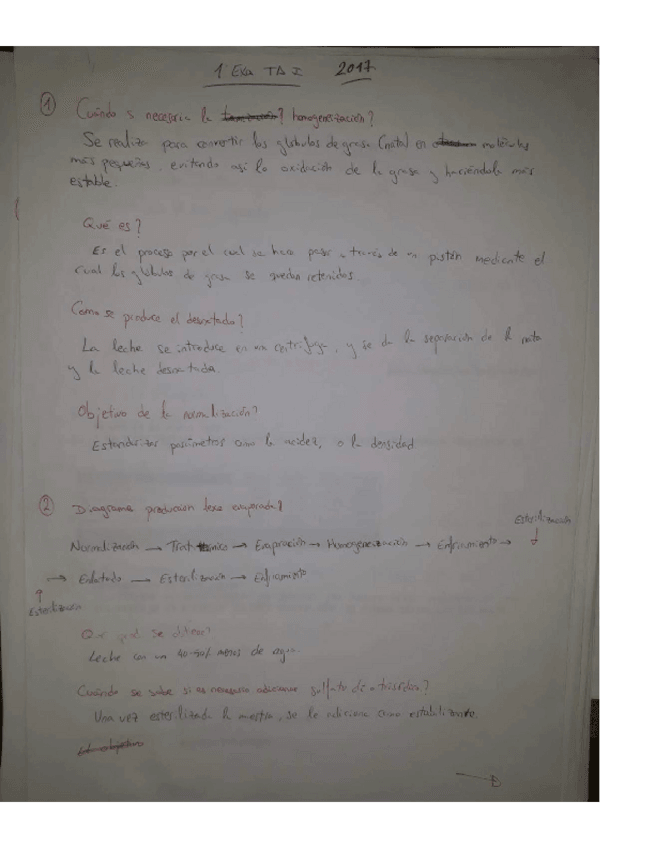 1 EXA TA I 2017
① Cuándo s necesaria la homogenización?
Se realiza para convertir los glóbulos de grasa (nata) en moléculas
más pequeñas, evitando así la oxidación de la grasa y haciéndola más
estable.
Qué es?
Es el proceso por el cual se hace pasar a través de un pistón mediante el
cual los glóbulos de grasa se quedan retenidos.
Cómo se produce el desnatado?
La leche se introduce en una centrífuga, y se da la separación de la nata
y la leche desnatada.
Objetivo de la normalización?
Estandarizar parámetros como la acidez, o la densidad
② Diagrama producción evaporada?
Esterilización
Normalización → Trat térmico → Evapración → Homogeneización → Enfriamiento →
→ Enlatado → Esterilización → Enfriamiento
Esterilización
Qué se
Leche con un 40-70% menos de agua.
Cuándo se sabe si es necesario adicionar sulfato
Una vez esterilizada la muestra, se le adiciona como estabilizante.
El objetivo